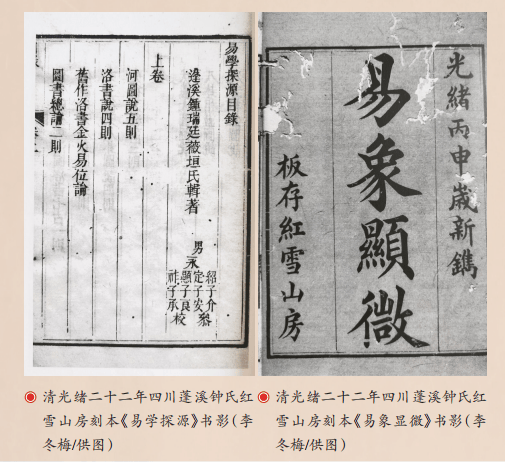 易學探源目錄
蓬溪鍾瑞廷薇垣氏輯著
男永
紹子介
定子安
顯子良
祚子承
叅校
上卷
河圖說五則
洛書說四則
舊作洛書金火易位論
圖書總論二則
光緒丙申歲新鐫
易象顯微
板存紅雪山房
清光绪二十二年四川蓬溪钟氏红
雪山房刻本《易学探源》书影(李
冬梅/供图)
清光绪二十二年四川蓬溪钟氏红
雪山房刻本《易象显微》书影(李
冬梅/供图)